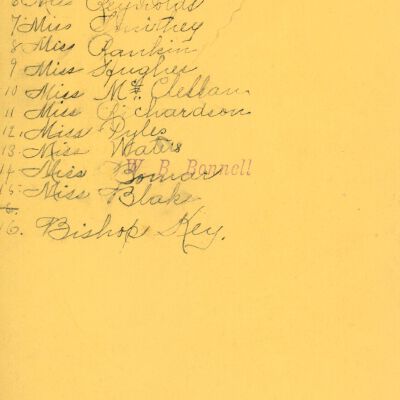 6 Miss Reynolds
7 Miss Smithey
8 Miss Rankin
9 Miss Hughes
10 Miss McClellan
11 Miss Richardson
12. Miss Pyles
13. Miss Waters
W. B. Bonnell
14 Miss Bomar
15 Miss Blake
16. Bishop Key.